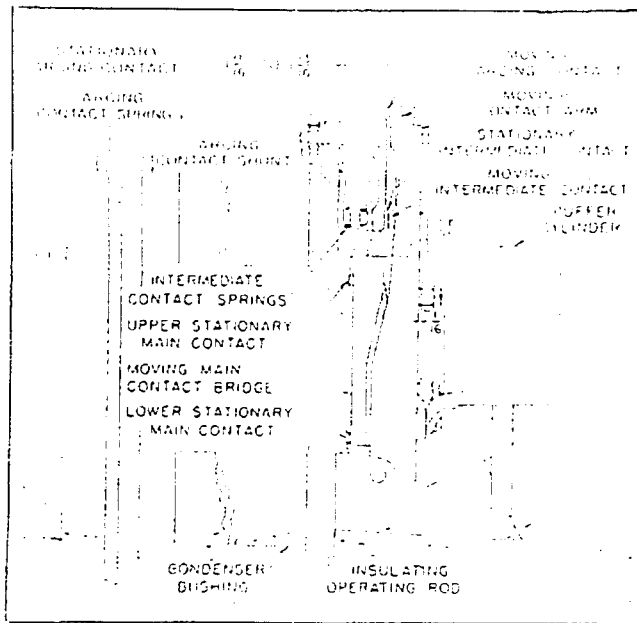 STATIONARY
ARCING CONTACT
ARCING
CONTACT SPRINGS
ARCING
CONTACT SHUNT
MOVING
ARCING CONTACT
MOVING
CONTACT ARM
STATIONARY
INTERMEDIATE CONTACT
MOVING
INTERMEDIATE CONTACT
PUFFER
CYLINDER
INTERMEDIATE
CONTACT SPRINGS
UPPER STATIONARY
MAIN CONTACT
MOVING MAIN
CONTACT BRIDGE
LOWER STATIONARY
MAIN CONTACT
(6)
CONDENSER
BUSHING
INSULATING
OPERATING ROD